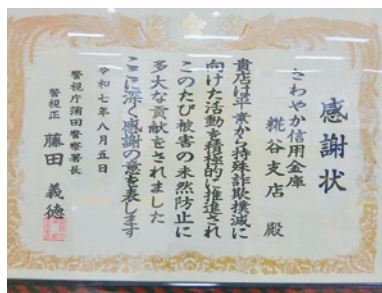 感謝状
さわやか信用金庫
糀谷支店 殿
貴店は平素から特殊詐欺撲滅に
向けた活動を積極的に推進され
このたび被害の未然防止に
多大な貢献をされました
ここに深く感謝の意を表します
令和七年八月五日
警視庁蒲田警察署長
警視正 藤田 義徳